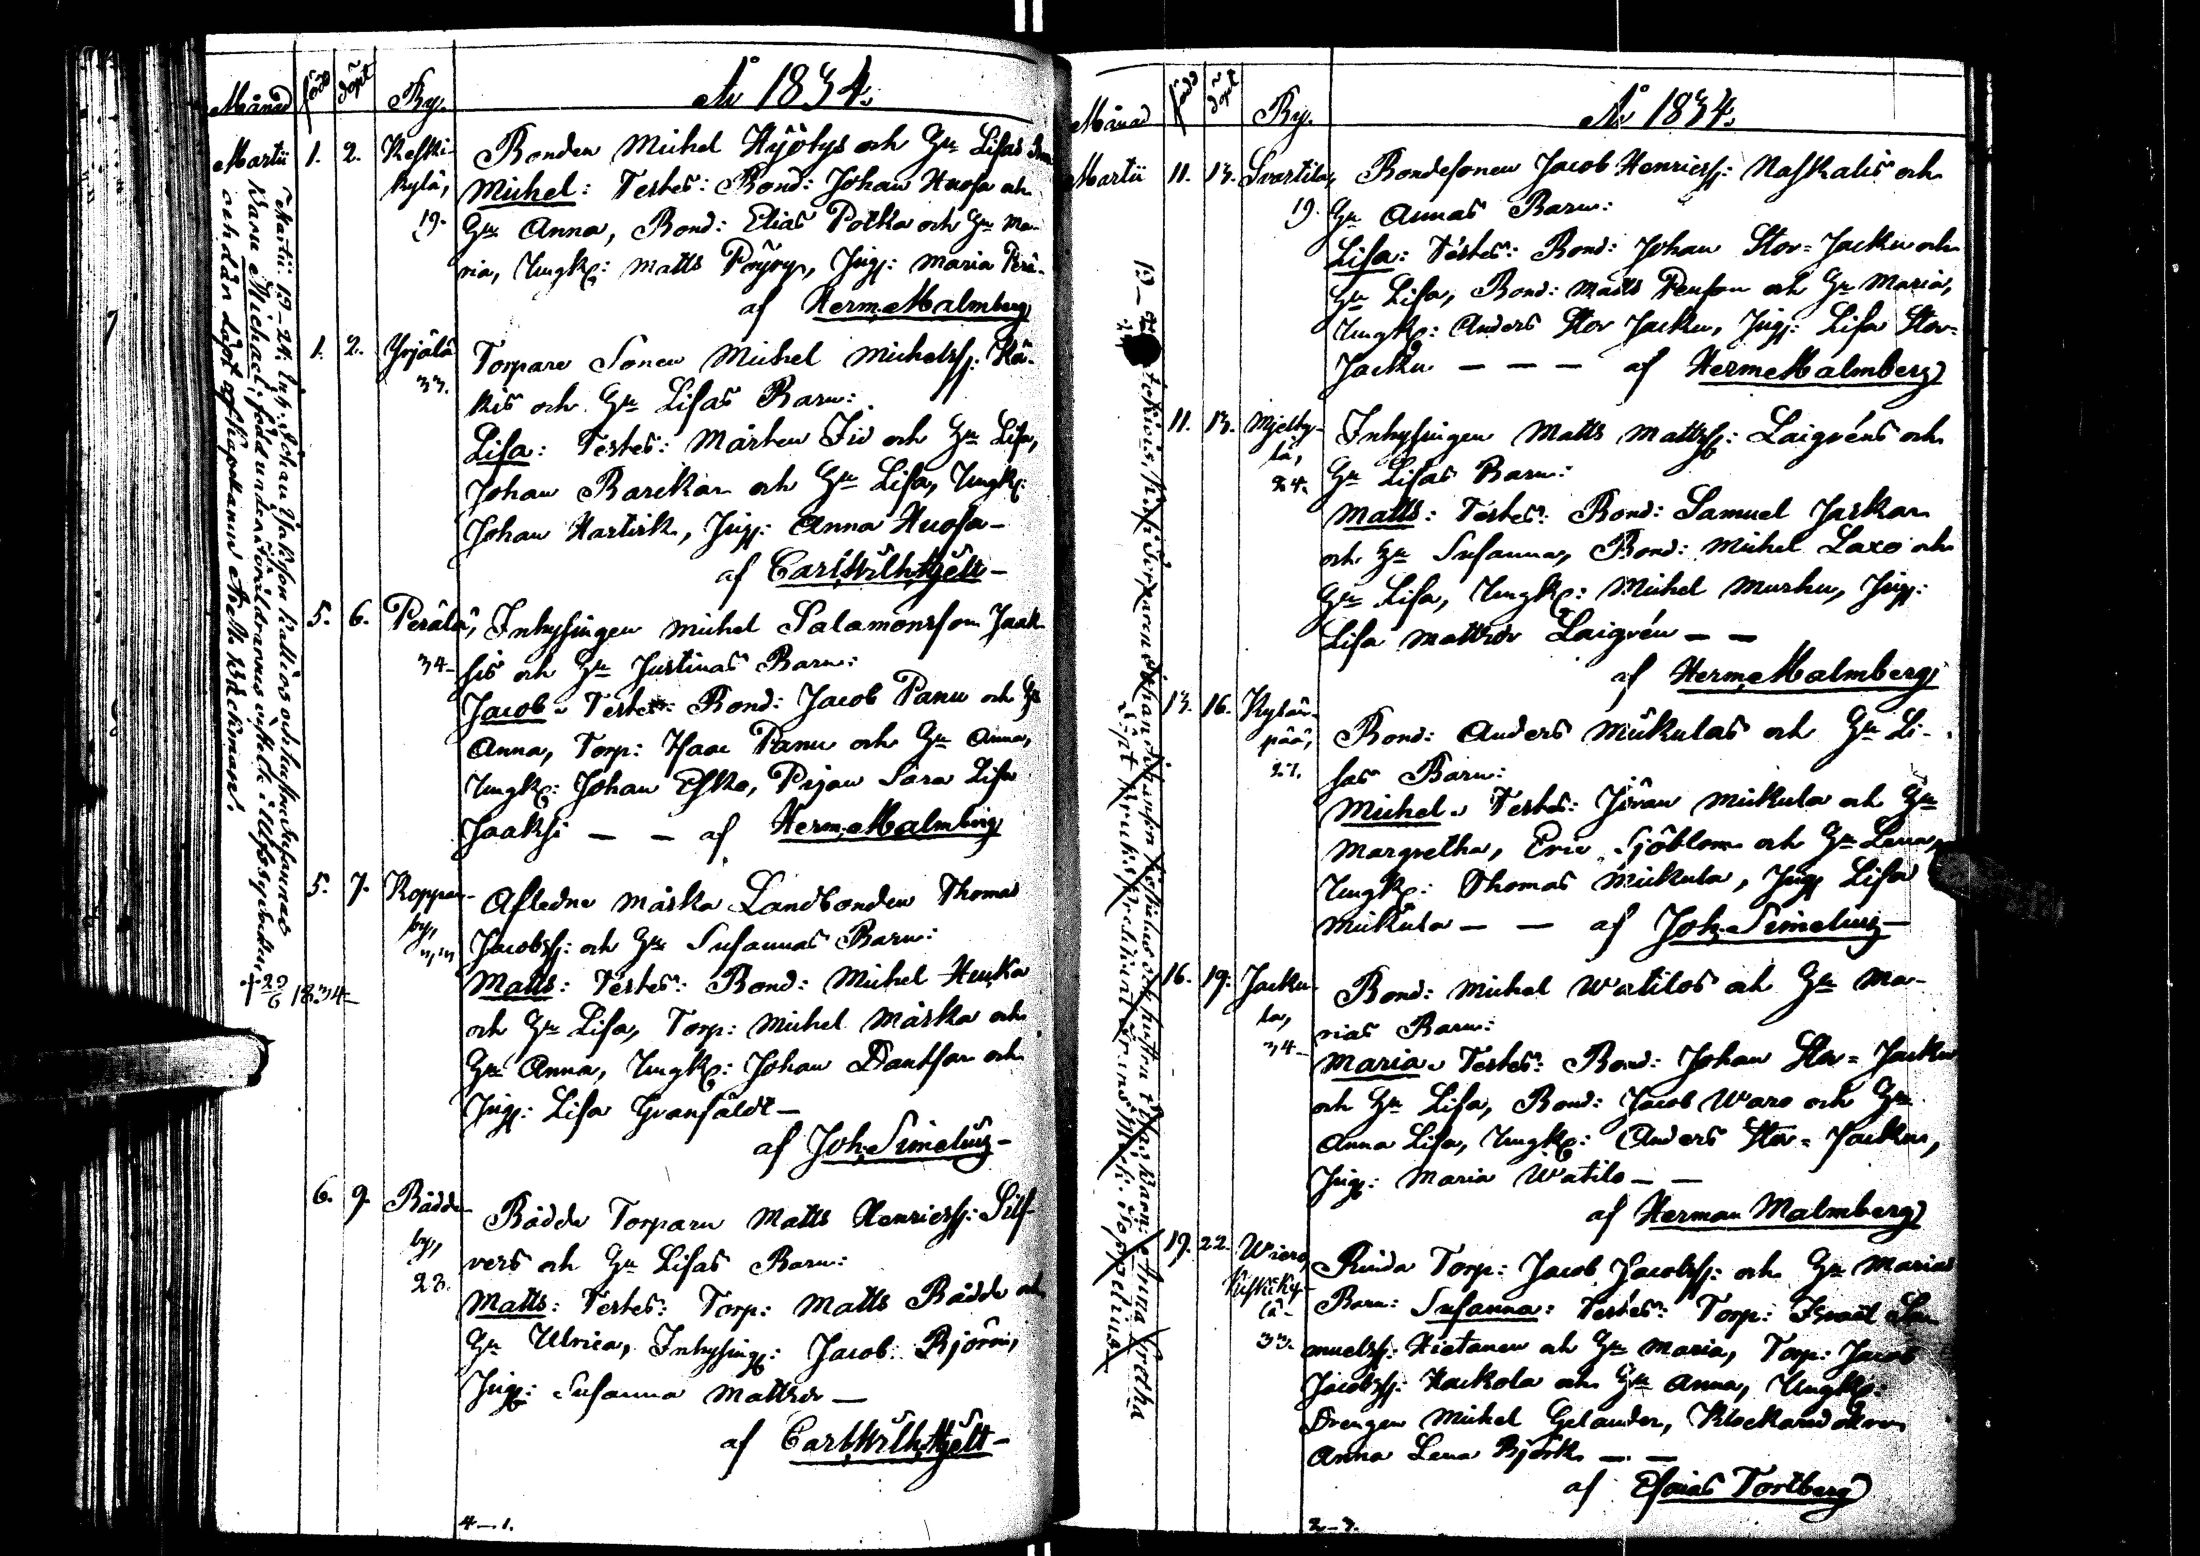 Månad född döpt By. År 1834.
Martii 1. 2. Keski- Bonden Michel Hyötys och Hu Lisas Son
kylä, Michel: Testes: Bond: Johan Huosa och
19. Hu Anna, Bond: Elias Potka och Hu Ma-
ria, Ungk: Matts Pöyry, Pig: Maria Perä-
af Herm. Malmberg
1. 2. Yrjälä Torpare Sonen Michel Michelss: Kä-
33. kis och Hu Lisas Barn:
Lisa: Testes: Mårten Fid och Hu Lisa,
Johan Barckar och Hu Lisa, Ungk:
Johan Hartick, Pig: Anna Huosa—
af Carl Wilh. Hjelt—
5. 6. Perälä, Inhysingen Michel Salamonsson Jaak-
34— sis och Hu Justinas Barn:
Jacob. Testes: Bond: Jacob Panu och Hu
Anna, Torp: Isaac Panu och Hu Anna,
Ungk: Johan Esko, Pigan Sara Lisa
Jaaksi — — af Herm. Malmberg
5. 7. Koppar- Afledne Måska Landbonden Thomas
by, Jacobss: och Hu Susannas Barn:
Matts: Testes: Bond: Michel Heuka
och Hu Lisa, Torp: Michel Måska och
Hu Anna, Ungk: Johan Dantsar och
Pig: Lisa Granfäldt—
af Joh. Simelius—
6. 9. Bådde- Bådde Torparn Matts Henricss: Silf-
by, vers och Hu Lisas Barn:
23. Matts: Testes: Torp: Matts Bådde och
Hu Ulrica, Inhysing: Jacob Björn,
Pig: Susanna Mattsdr —
af Carl Wilh. Hjelt—
4—1.
Martii 19. 24. Inh. Johan Jakssson Kallios och hustru Susannas
barn Michael; född under föräldrarnas vistelse i Ulfsbyåminne,
och dän döpt af Kapellanen
† 29/6 1834—
Månad född döpt By. År 1834.
Martii 11. 13. Svartila, Bondesonen Jacob Henricss: Naskalis och
19. Hu Annas Barn:
Lisa: Testes: Bond: Johan Stor-Jacku och
Hu Lisa, Bond: Matts Penson och Hu Maria,
Ungk: Anders Stor Jacku, Pig: Lisa Stor-
Jacku — — — af Herm. Malmberg
11. 13. Mjelby- Inhysingen Matts Mattss: Laigréns och
lä, Hu Lisas Barn:
24. Matts: Testes: Bond: Samuel Jaskar
och Hu Susanna, Bond: Michel Laxo och
Hu Lisa, Ungk: Michel Murhu, Pig:
Lisa Mattsdr Laigrén — —
af Herm. Malmberg
13. 16. Kylän- Bond: Anders Mükulas och Hu Li-
pää, sas Barn:
27. Michel. Testes: Jöran Mickula och Hu
Margretha, Eric Sjöblom och Hu Lena,
Ungk: Thomas Mickula, Pig Lisa
Mikula — — af Joh. Simelius—
16. 19. Jacku- Bond: Michel Watilos och Hu Ma-
la, rias Barn:
34— Maria. Testes: Bond: Johan Stor-Jacku
och Hu Lisa, Bond: Jacob Waro och Hu
Anna Lisa, Ungk: Anders Stor-Jacku,
Pig: Maria Watilo — —
af Herman Malmberg
19. 22. Wiero, Kuskiky- Rinda Torp: Jacob Jacobss: och Hu Marias
lä- Barn: Susanna: Testes: Torp: Israël Sa-
33. muelss: Hietanen och Hu Maria, Torp: Jacob
Jacobss: Hackola och Hu Anna, Ungk:
Drengen Michel Gelander, Klockaredottren
Anna Lena Björk — —
af Esaias Tortberg
2—3.